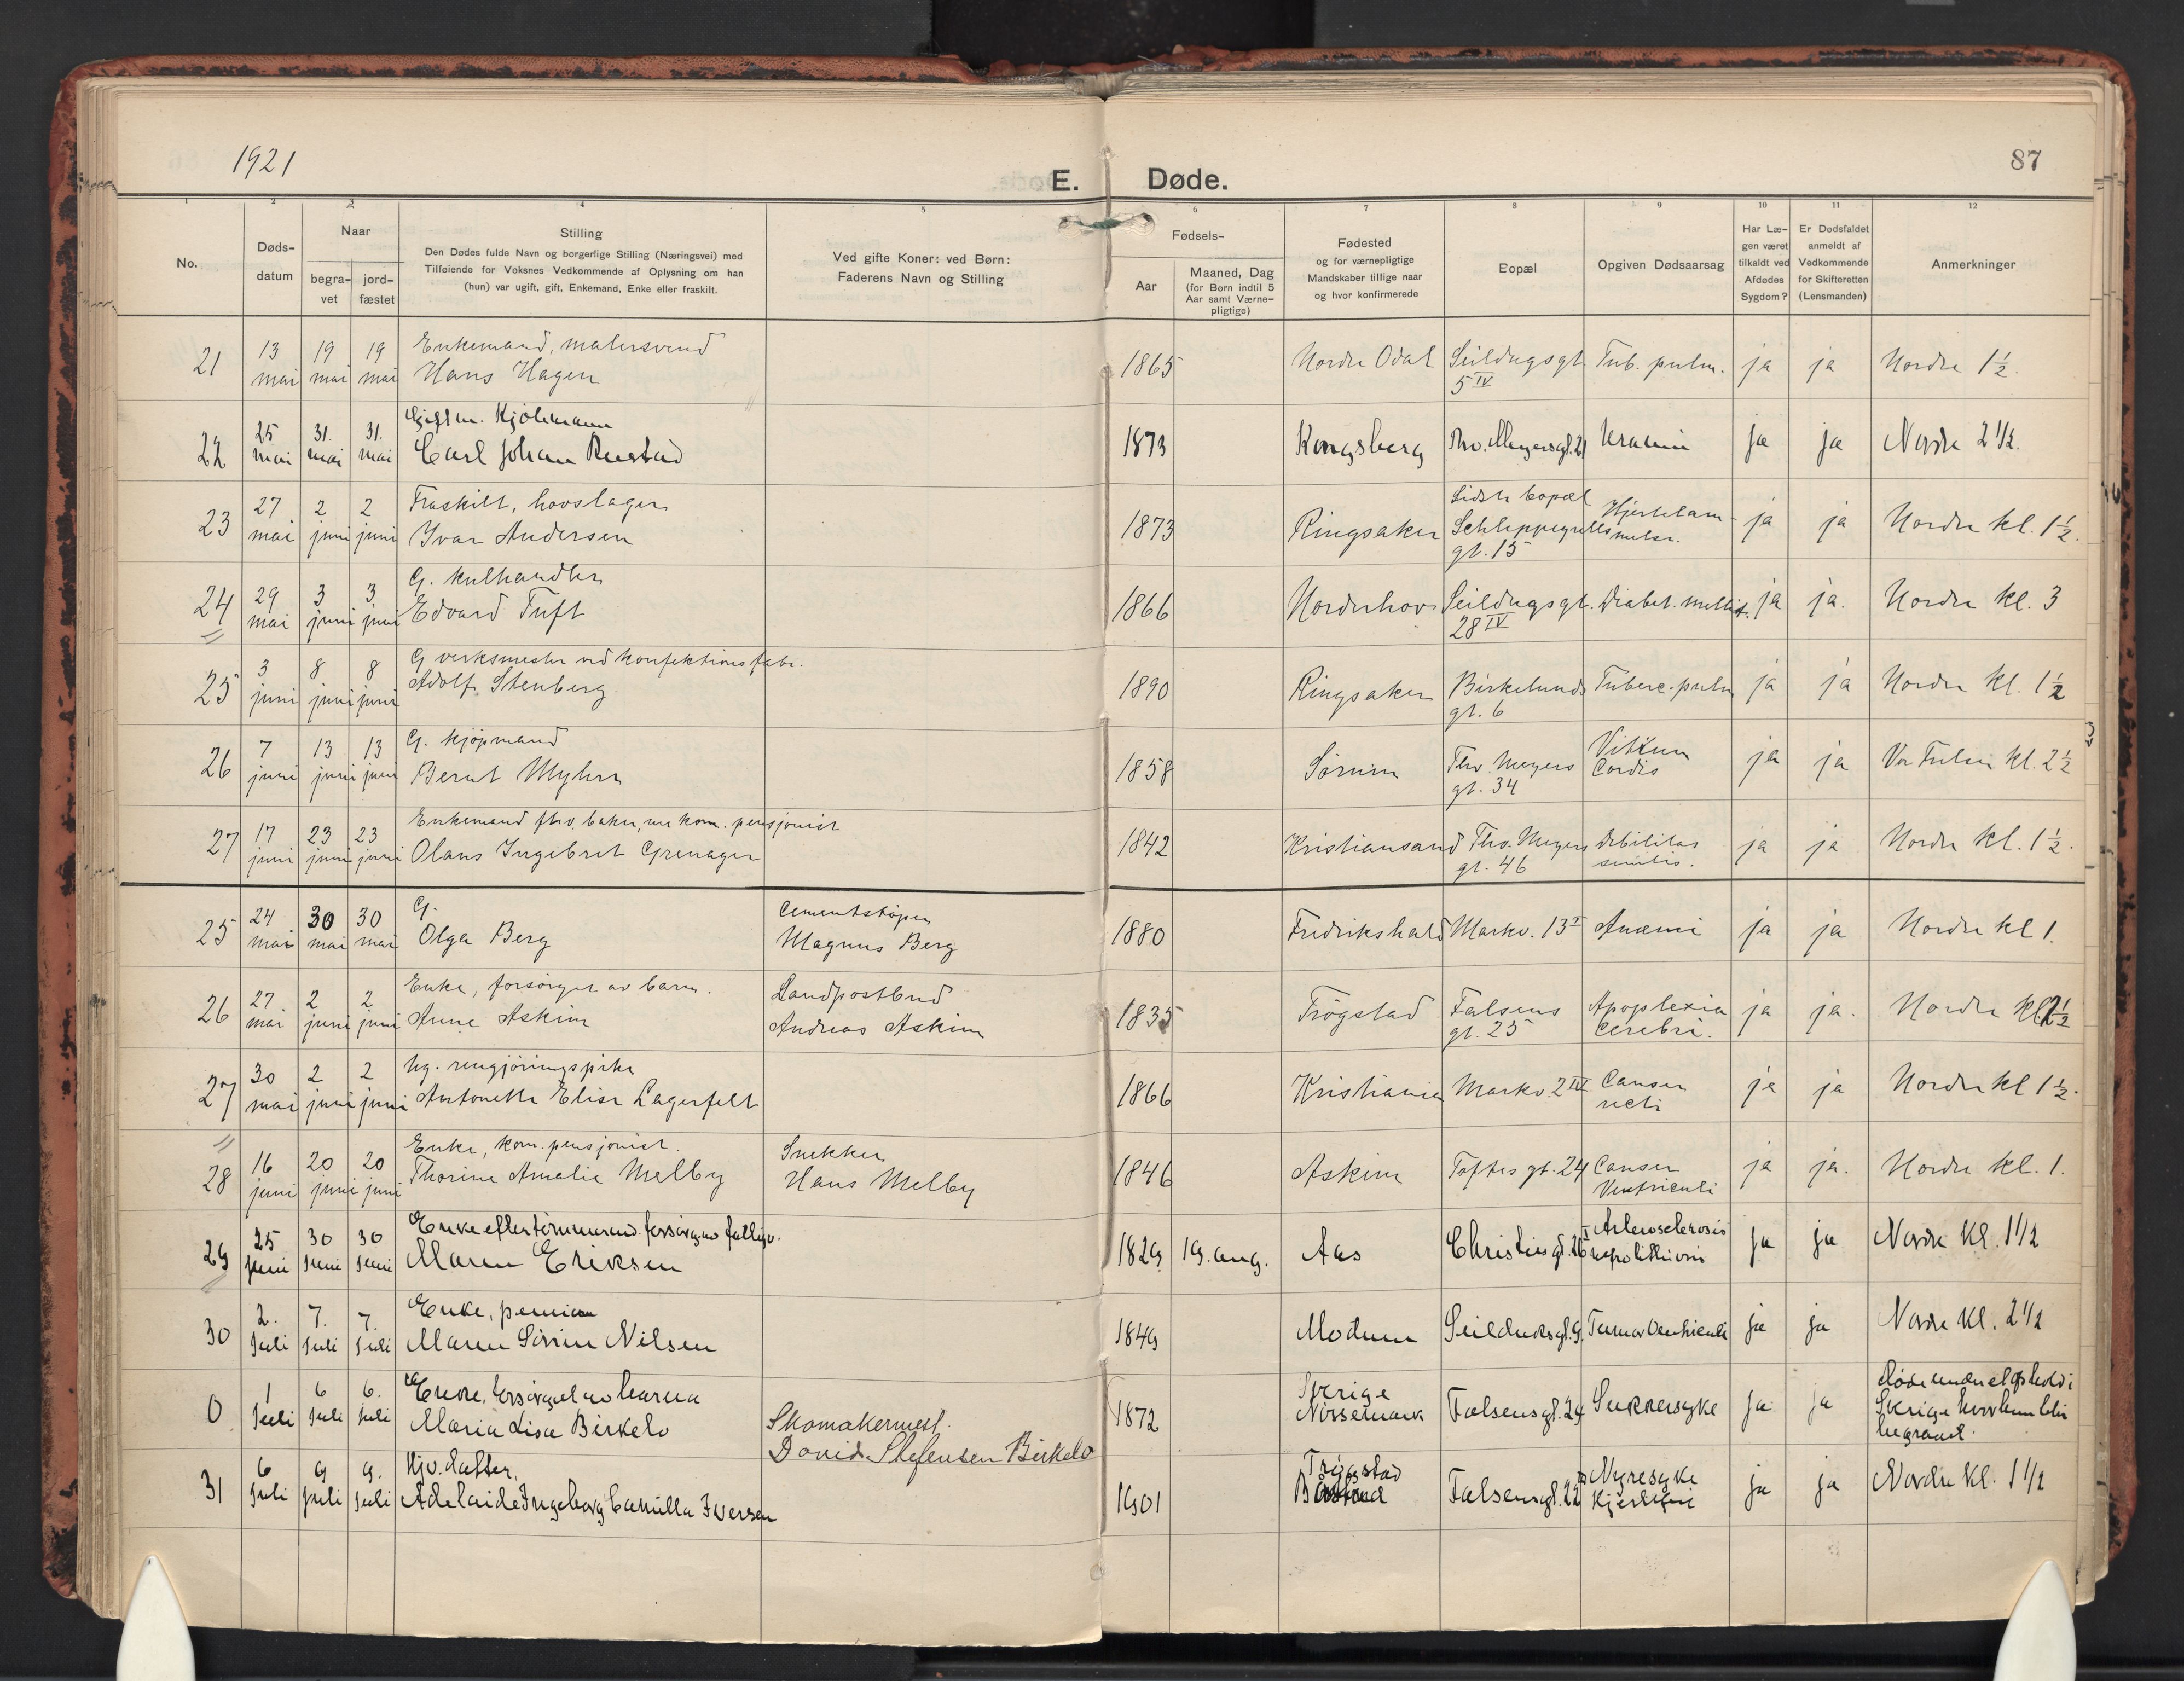 1921
E. Døde.
87
1 2 3 4 5 6 7 8 9 10 11 12
No.
Døds-
datum
Naar
begra-
vet
jord-
fæstet
Stilling
Den Dødes fulde Navn og borgerlige Stilling (Næringsvei) med
Tilføiende for Voksnes Vedkommende af Oplysning om han
(hun) var ugift, gift, Enkemand, Enke eller fraskilt.
Ved gifte Koner: ved Børn:
Faderens Navn og Stilling
Fødsels-
Aar
Maaned, Dag
(for Børn indtil 5
Aar samt Værne-
pligtige)
Fødested
og for værnepligtige
Mandskaber tillige naar
og hvor konfirmerede
Eopæl
Opgiven Dødsaarsag
Har Læ-
gen været
tilkaldt ved
Afdødes
Sygdom?
Er Dødsfaldet
anmeldt af
Vedkommende
for Skifteretten
(Lensmanden)
Anmerkninger
Enkemand, malersvend
21 13 mai 19 mai 19 mai Hans Hagen 1865 Nordre Odal Seildugsgt. 5 IV Tub. pulm. ja ja Nordre 1 1/2.
Gift m. Kjölemann
22 25 mai 31. mai 31. mai Carl Johan Rustad 1873 Kongsberg Thv. Meyersgt. 21 Uræmi ja ja Nordre 2 1/2.
Fraskilt, hovslager
23 27 mai 2 juni 2 juni Ivar Andersen 1873 Ringsaker Sidste bopæl Schleppegrells gt. 15 Hjertelammelse. ja ja Nordre kl. 1 1/2.
G. kulhandler
24 29 mai 3 juni 3 juni Edvard Tuft 1866 Norderhov Seildugsgt. 28 IV Diabet. mellit. ja ja. Nordre kl. 3
G verksmester ved konfektionsfabr.
25 3 juni 8 juni 8 juni Adolf Stenberg 1890 Ringsaker Birkelunds gt. 6 Tuberc. pulm ja ja Nordre kl. 1 1/2
G. kjøpmand
26 7 juni 13 juni 13 juni Bernt Myhre 1858 Sørum Thv. Meyers gt. 34 Vitium Cordis ja ja Vor Frelser kl. 2 1/2
Enkemand fhv. baker, nu kom. pensjonist
27 17 juni 23 juni 23 juni Olaus Ingebret Grenager 1842 Kristiansand Thv. Meyers gt. 46 Debilitas senilis. ja ja Nordre kl. 1 1/2.
G. Cementstøper
25 24 mai 30 mai 30 mai Olga Berg Magnus Berg 1880 Fredrikshald Markv. 13 I Anæmi ja ja Nordre kl 1.
Enke, forsørget av barn. Landpostbud
26 27 mai 2 juni 2 juni Anne Askim Andreas Askim 1835 Trøgstad Falsens gt. 25 Apoplexia Cerebri. ja ja. Nordre kl. 2 1/2
Ug. rengjøringspike
27 30 mai 2 juni 2 juni Antonette Elise Lagerfelt 1866 Kristiania Markv. 2 IV Cancer recti ja ja Nordre kl 1 1/2.
Enke, kom. pensjonist. Snekker
28 16 juni 20 juni 20 juni Thorine Amalie Melby Hans Melby 1846 Askim Toftes gt. 24 Cancer Ventriculi ja ja. Nordre kl. 1.
Enke efter tömmermd. forsörg. av fattigv.
29 25 juni 30 juni 30 juni Maren Eriksen 1829 19. aug. Aas Christies gt. 26 I Arterosclerosis ja ja Nordre kl. 1 1/2
Enke,
30 2. Juli 7. juli 7. juli Maren Sörine Nilsen 1849 Modum Seilduksgt. 9 Tumor Ventriculi ja ja Nordre kl. 2 1/2
Enke, forsörget av barna
0 1 Juli 6 juli 6. juli Maria Lisa Birkelo Skomakermest. David Stefensen Birkelo 1872 Sverige Nössemark Falsensgt. 24 Sukkersyke ja ja Döde under et ophold i Sverige hvor hun blir begravet.
Hjv. datter,
31 6 Juli 9 juli 9. juli Adelaide Ingeborg Camilla Iversen 1901 Trögstad Falsensgt. 22 Nyresyke ja ja Nordre kl. 1 1/2